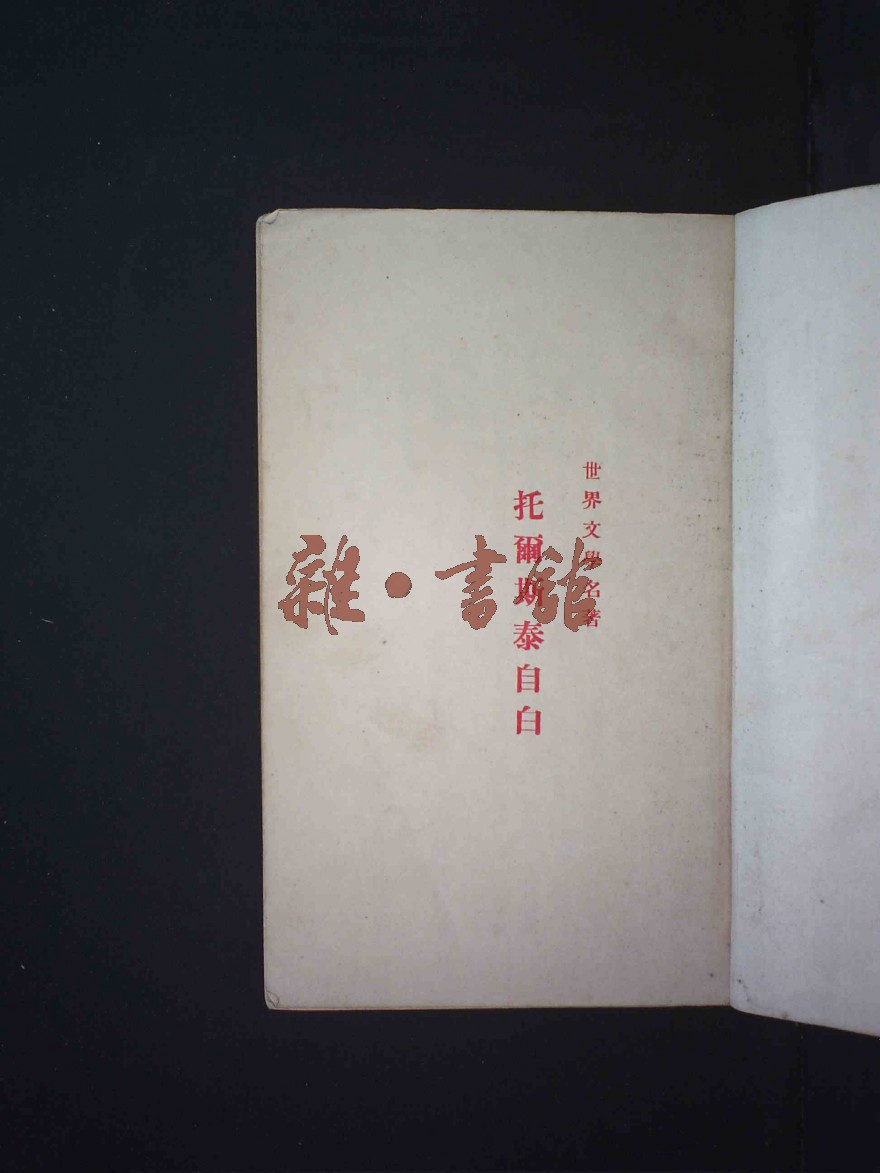 世界文學名著
托爾斯泰自白
雜·書館